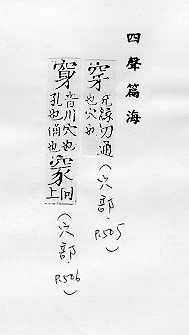 四聲篇海
穿 切通
也穴也
(穴部.P.505)
音川穴也
孔也也 同上
(穴部.P.506)